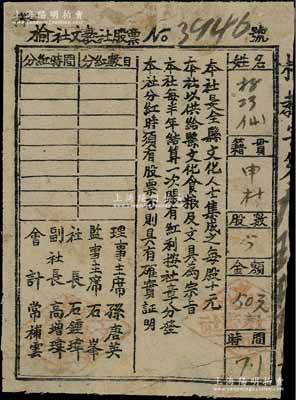 榆社文教社股票 No 3446 號
姓名
籍貫 申村
股數
金額 50元
時間 7.1
本社是全縣文化人士集成之每股十元
本社以供給縣文化食粮及文具為宗旨
本社每半年結算一次賬有紅利按社章分發
本社分紅時須有股票否則具有確實証明
分紅時間 分紅數目
理事主席 孫唐英
監事主席 石峯
社長 石鍾璋
副社長 高增瑋
會計 常補雲